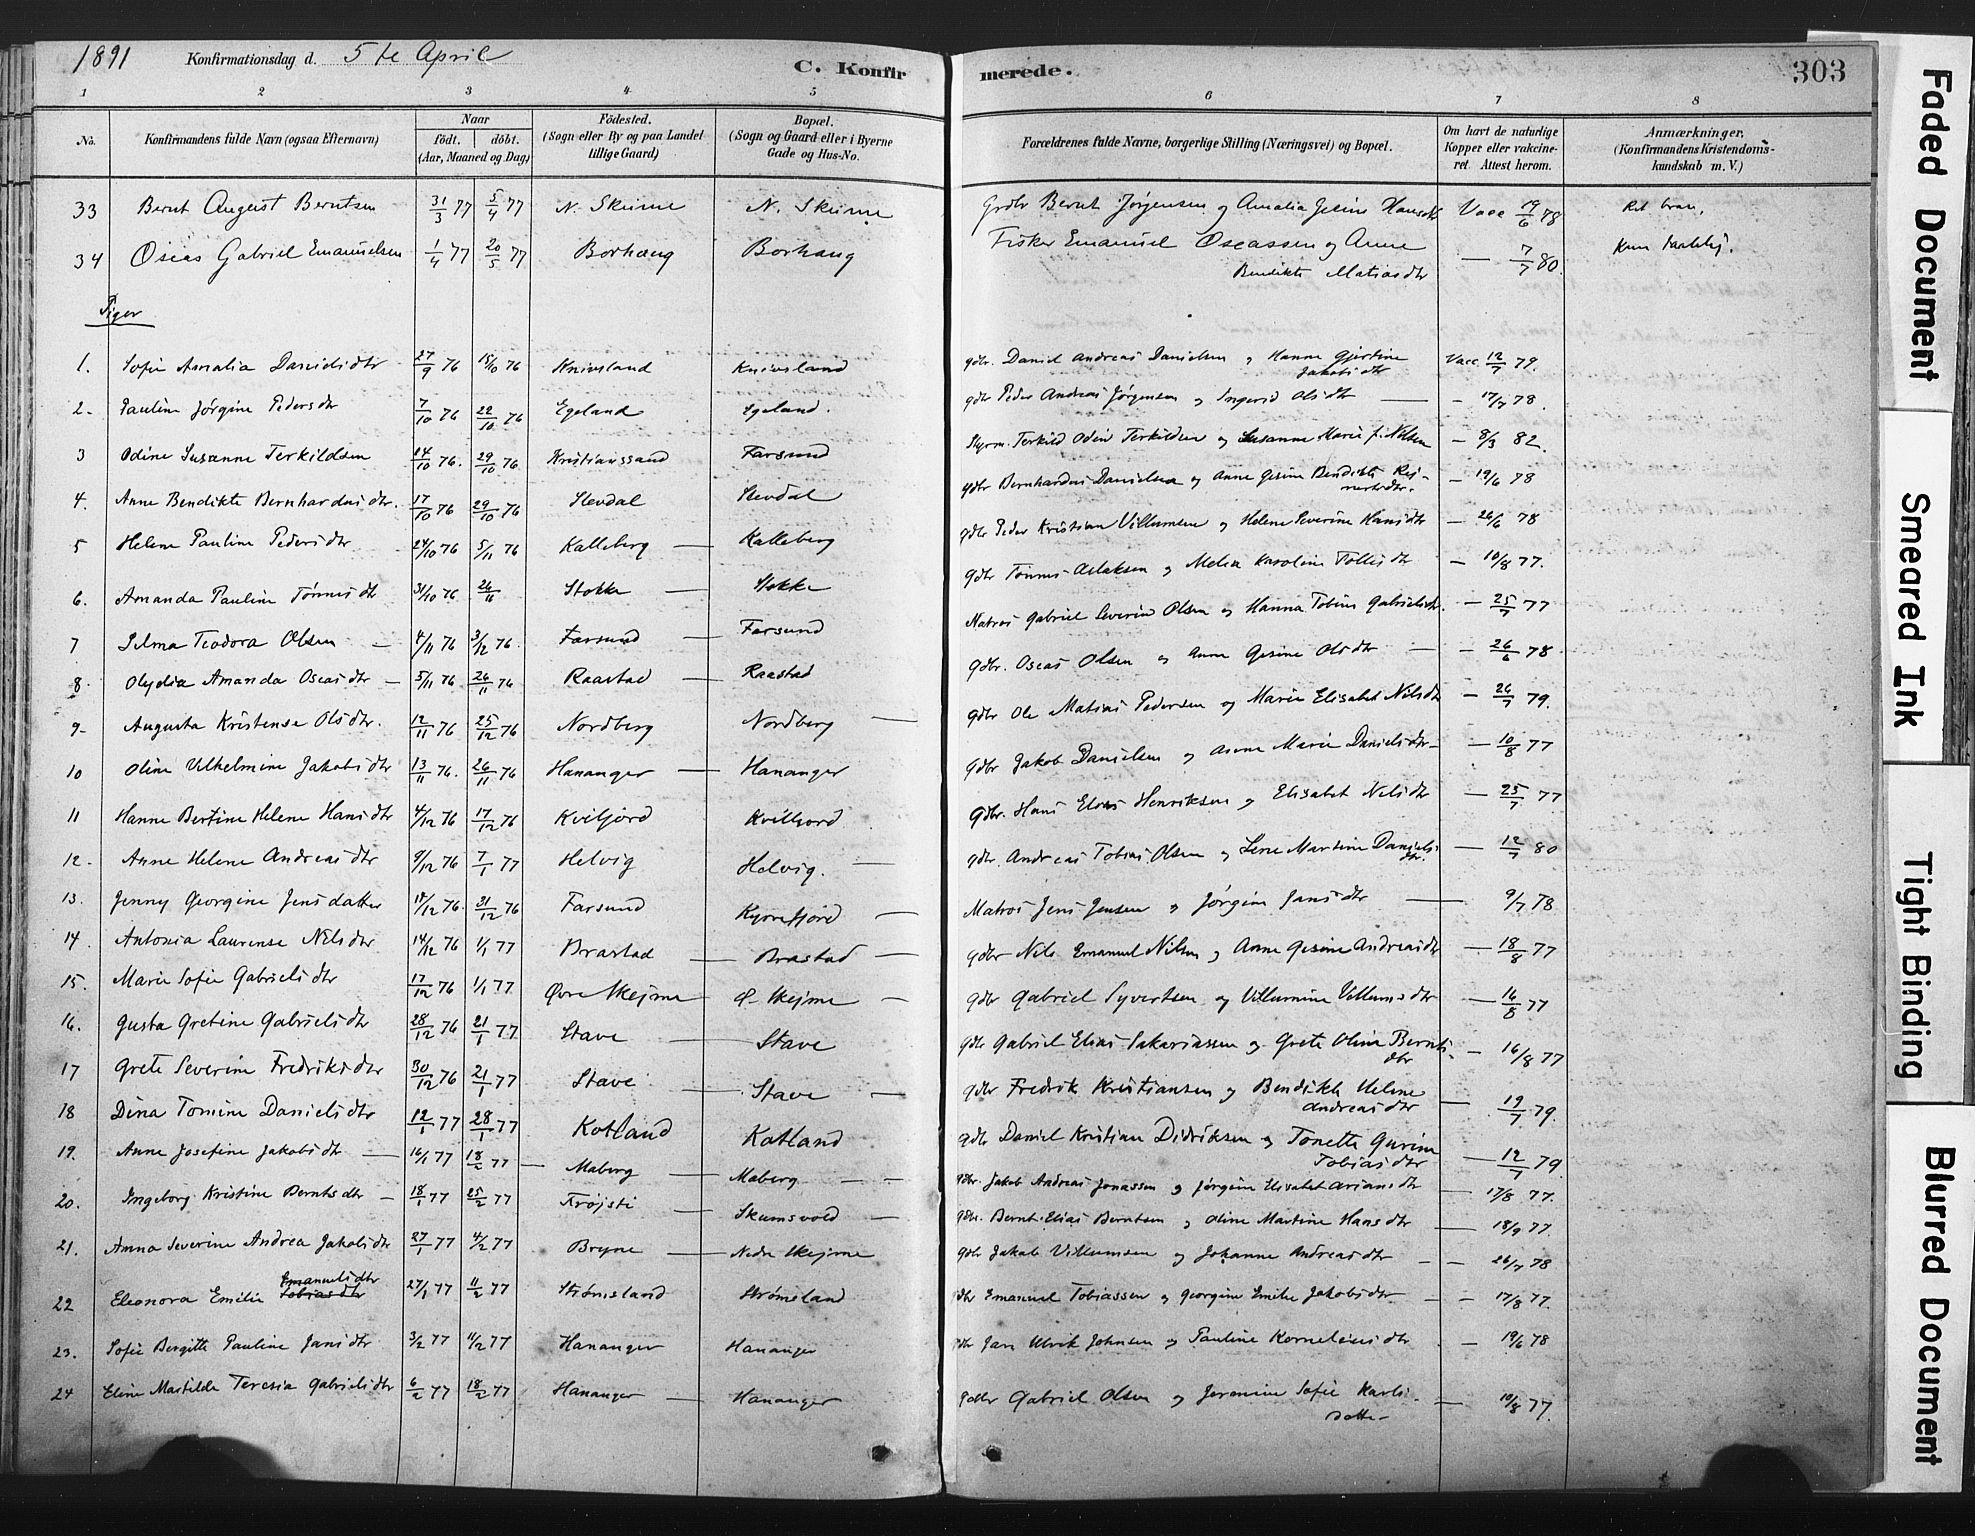 1891 Konfirmationsdag d. 5te April C. Konfirmerede. 303
1 2 3 4 5 6 7 8
No. Konfirmandens fulde Navn (ogsaa Efternavn) Naar født. døbt. (Aar, Maaned og Dag) Fødested. (Sogn eller By og paa Landet tillige Gaard) Bopæl. (Sogn og Gaard eller i Byerne Gade og Hus-No. Forældrenes fulde Navne, borgerlige Stilling (Næringsvei) og Bopæl. Om havt de naturlige Kopper eller vakcineret. Attest herom. Anmærkninger. (Konfirmandens Kristendomskundskab m. V.)
33 Bernt August Berntsen 31/3 77 5/4 77 N. Skeime N. Skeime Grdbr Bernt Jørgensen og Amalia Hansdtr Vacc 19/6 78
34 Oseas Gabriel Emanuelsen 1/4 77 20/5 77 Borhaug Borhaug Fisker Emanuel Oseassen og Anne Bendikte Matiasdtr — 7/7 80.
Piger
1. Sofie Amalia Danielsdtr 27/9 76 15/10 76 Knivsland Knivsland gdbr. Daniel Andreas Danielsen og Hanne Gjertine Jakobsdtr Vacc 12/7 79.
2- Pauline Jørgine Pedersdtr 7/10 76 22/10 76 Egeland Egeland. gdbr Peder Andreas Jørgensen og Ingerid Olsdtr — - 17/7 78.
3 Odine Susanne Terkildsen 24/10 76. 29/10 76 Kristianssand Farsund Styrm. Terkild Odin Terkildsen og Susanne Marie f. Nilsen — 8/3 82.
4. Anne Bendikte Bernhardusdtr. 17/10 76 29/10 76 Slevdal Slevdal gdbr Bernhardus Danielsen og Anne Gesine Bendikte Reinertsdtr. — 19/6 78
5 Helene Pauline Pedersdtr 24/10 76 5/11 76 Kalleberg — Kalleberg gdbr Peder Kristian Villumsen og Helene Severine Hansdtr — 26/6 78
6. Amanda Pauline Tønnesdtr 31/10 76 26/11 Stokke — Stokke gdbr Tønnes Aslaksen og Melia Karoline Tollisdtr — 10/8 77.
7 Selma Teodora Olsen — 4/11 76 3/12 76. Farsund — Farsund Matros Gabriel Severin Olsen og Hanna Tobine Gabrielsdtr. — 25/7 77
8. Olydia Amanda Oseasdtr — 5/11 76 26/11 76 Raastad — Raastad gdbr. Oseas Olsen og Anne Gesine Olsdtr — - 26/6 78
9- Augusta Kristense Olsdtr. 12/11 76 25/12 76 Nordberg Nordberg — gdbr Ole Matias Pedersen og Marie Elisabet Nilsdtr — 26/7 79.
10 Oline Vilhelmine Jakobsdtr 13/11 76. 26/11 76 Hananger — Hananger gdbr Jakob Danielsen og Anne Marie Danielsdtr — 10/8 77
11 Hanne Bertine Helene Hansdtr 4/12 76 17/12 76 Kviljord Kviljord gdbr. Hans Elias Henriksen og Elisabet Nilsdtr — 25/7 77
12- Anne Helene Andreasdtr 9/12 76 7/1 77 Helvig Helvig. — gdbr. Andreas Tobias Olsen og Lene Martine Danielsdtr. — 12/7 80
13. Jenny Georgine Jensdatter 14/12 76. 31/12 76 Farsund Kjørrefjord — Matros Jens Jensen og Jørgine Jansdtr — 9/7 78
14. Antonia Laurense Nilsdtr 14/12 76 1/1 77 Brastad — Brastad — gdbr Nils Emanuel Nilsen og Anne Gesine Andreasdtr — 18/8 77
15. Marie Sofie Gabrielsdtr 17/12 76 1/1 77. Øvre Skejme Ø. Skejme — gdbr Gabriel Syvertsen og Villumine Villumsdtr — 16/8 77
16. Gusta Gretine Gabrielsdtr 28/12 76 21/1 77 Stave — Stave gdbr Gabriel Elias Sakariassen og Grete Oline Berntsdtr — 16/8 77
17 Grete Severine Fredriksdtr 30/12 76 21/1 77 Stave — Stave — gdbr Fredrik Kristiansen og Bendikte Helene Andreasdtr — 19/7 79.
18 Dina Tomine Danielsdtr 12/1 77 28/1 77 Kotland Kotland gdbr Daniel Kristian Didriksen og Tonette Gurine Tobiasdtr — 12/7 79
19. Anne Josefine Jakobsdtr — 16/1 77 18/2 77 — Maberg — Maberg — gdbr. Jakob Andreas Jonassen og Jørgine Elisabet Ariansdtr — 17/8 77.
20. Ingeborg Kristine Berntsdtr — 18/1 77 25/2 77 Frøjsti — Skumsvold — gdbr. Bernt Elias Berntsen og Oline Martine Hansdtr — 18/9 77.
21. Anna Severine Andrea Jakobsdtr 27/1 77 4/2 77 Bryne — Nedre Skejme gdbr Jakob Villumsen og Johanne Andreasdtr — - 26/7 78
22 Eleonora Emilie Tobiasdtr Emanuelsdtr 27/1 77 11/2 77 Strømsland Strømsland gdbr Emanuel Tobiassen og Georgine Emilie Jakobsdtr — - 17/8 77.
23. Sofie Bergitte Pauline Jansdtr 3/2 77 11/2 77 Hananger Hananger gdbr Jan Ulrik Johnsen og Pauline Korneliusdtr - 19/6 78
24 Eline Matilde Teresia Gabrielsdtr 6/2 77 18/2 77 Hananger — Hananger gdbr Gabriel Olsen og Jeremine Sofie Karlsdatter — 10/8 77.
Faded Document
Smeared Ink
Tight Binding
Blurred Document